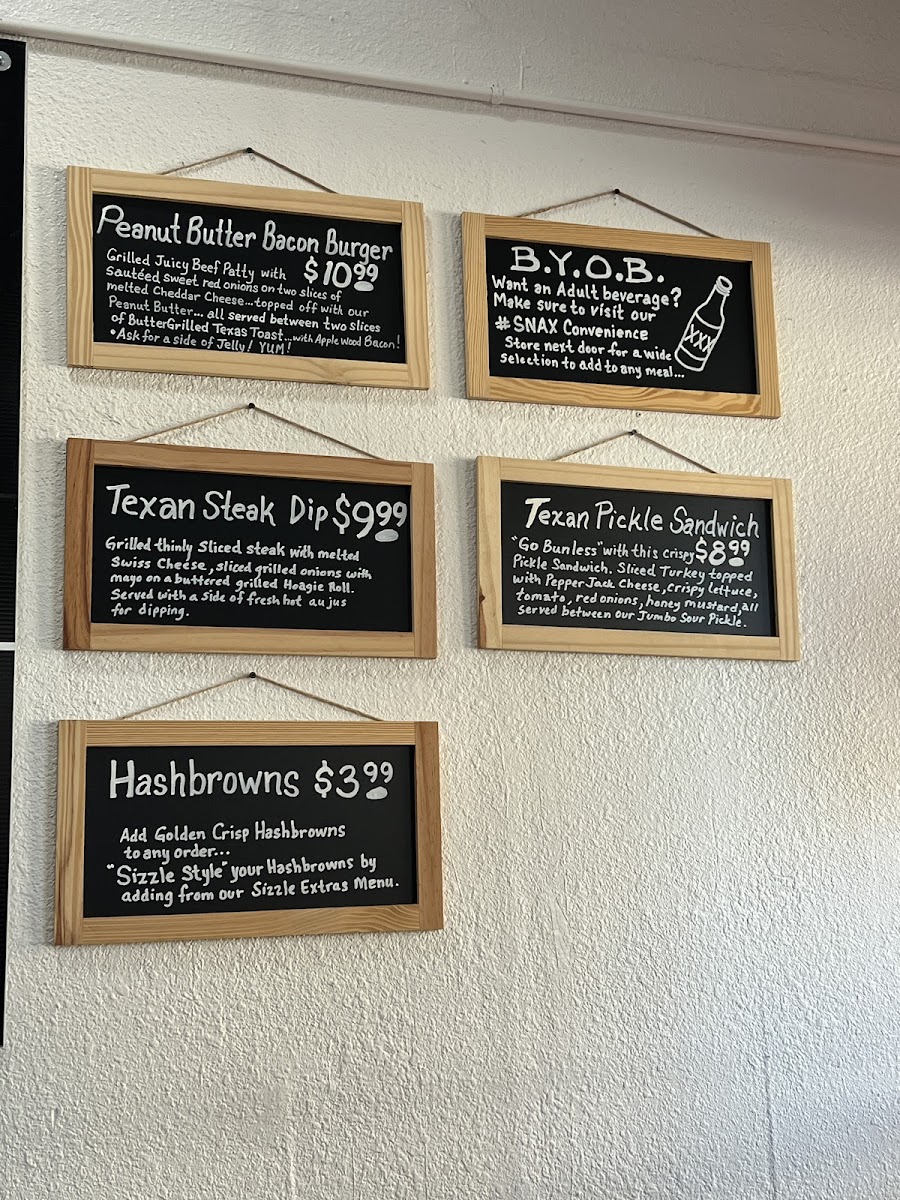 Peanut Butter Bacon Burger
$10.99
Grilled Juicy Beef Patty with
sautéed sweet red onions on two slices of
melted Cheddar Cheese...topped off with our
Peanut Butter... all served between two slices
of ButterGrilled Texas Toast...with Apple Wood Bacon!
•Ask for a side of Jelly! YUM!
B.Y.O.B.
Want an Adult beverage?
Make sure to visit our
#SNAX Convenience
Store next door for a wide
selection to add to any meal...
XXX
Texan Steak Dip $9.99
Grilled thinly sliced steak with melted
Swiss Cheese, sliced grilled onions with
mayo on a buttered grilled Hoagie Roll.
Served with a side of fresh hot au jus
for dipping.
Texan Pickle Sandwich
$8.99
"Go Bunless" with this crispy
Pickle Sandwich. Sliced Turkey topped
with Pepper Jack Cheese, crispy lettuce,
tomato, red onions, honey mustard, all
served between our Jumbo Sour Pickle.
Hashbrowns $3.99
Add Golden Crisp Hashbrowns
to any order...
"Sizzle Style" your Hashbrowns by
adding from our Sizzle Extras Menu.